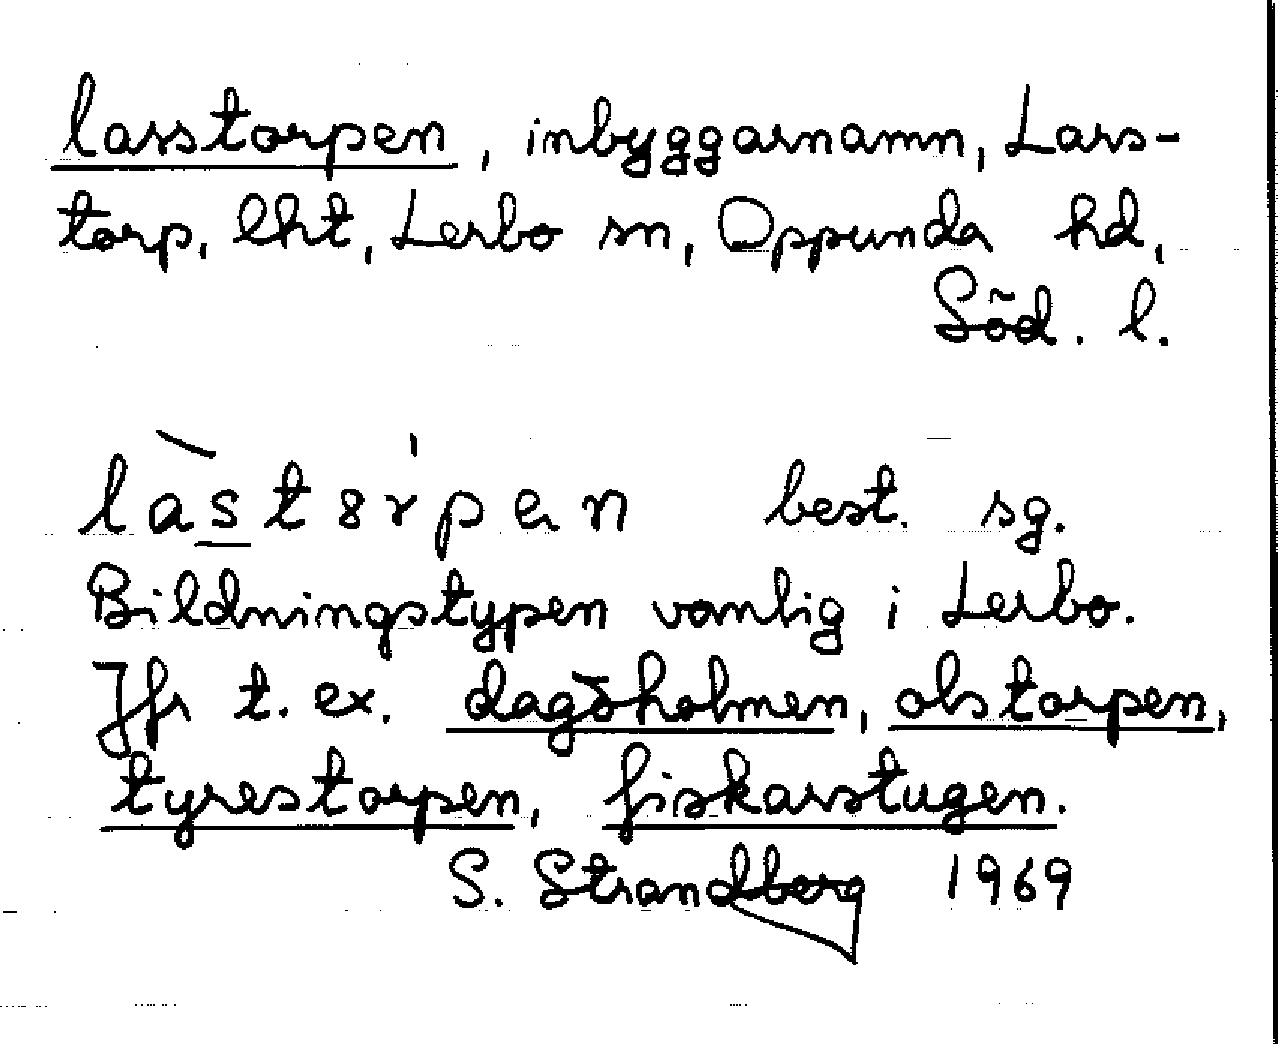 lasstorpen, inbyggarnamn, Lars-
torp, lht, Lerbo sn, Oppunda hd,
Söd. l.
làst8r'pen best. sg.
Bildningstypen vanlig i Lerbo.
Jfr t. ex. dagöholmen, olstorpen,
tyrestorpen, fiskarstugen.
S. Strandberg 1969